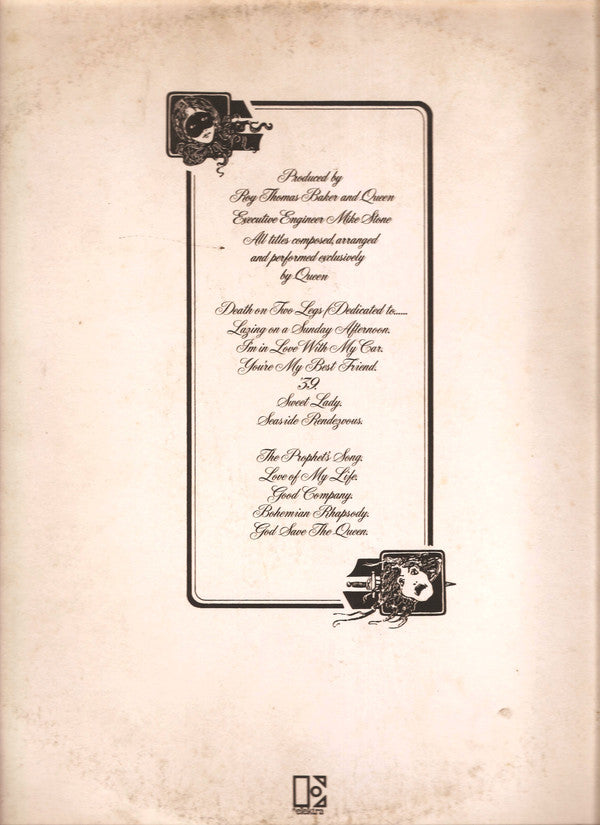 Produced by
Roy Thomas Baker and Queen
Executive Engineer Mike Stone
All titles composed, arranged
and performed exclusively
by Queen
Death on Two Legs (Dedicated to......
Lazing on a Sunday Afternoon.
I'm in Love With My Car.
You're My Best Friend.
'39.
Sweet Lady.
Seaside Rendezvous.
The Prophet's Song.
Love of My Life.
Good Company.
Bohemian Rhapsody.
God Save The Queen.
elektra